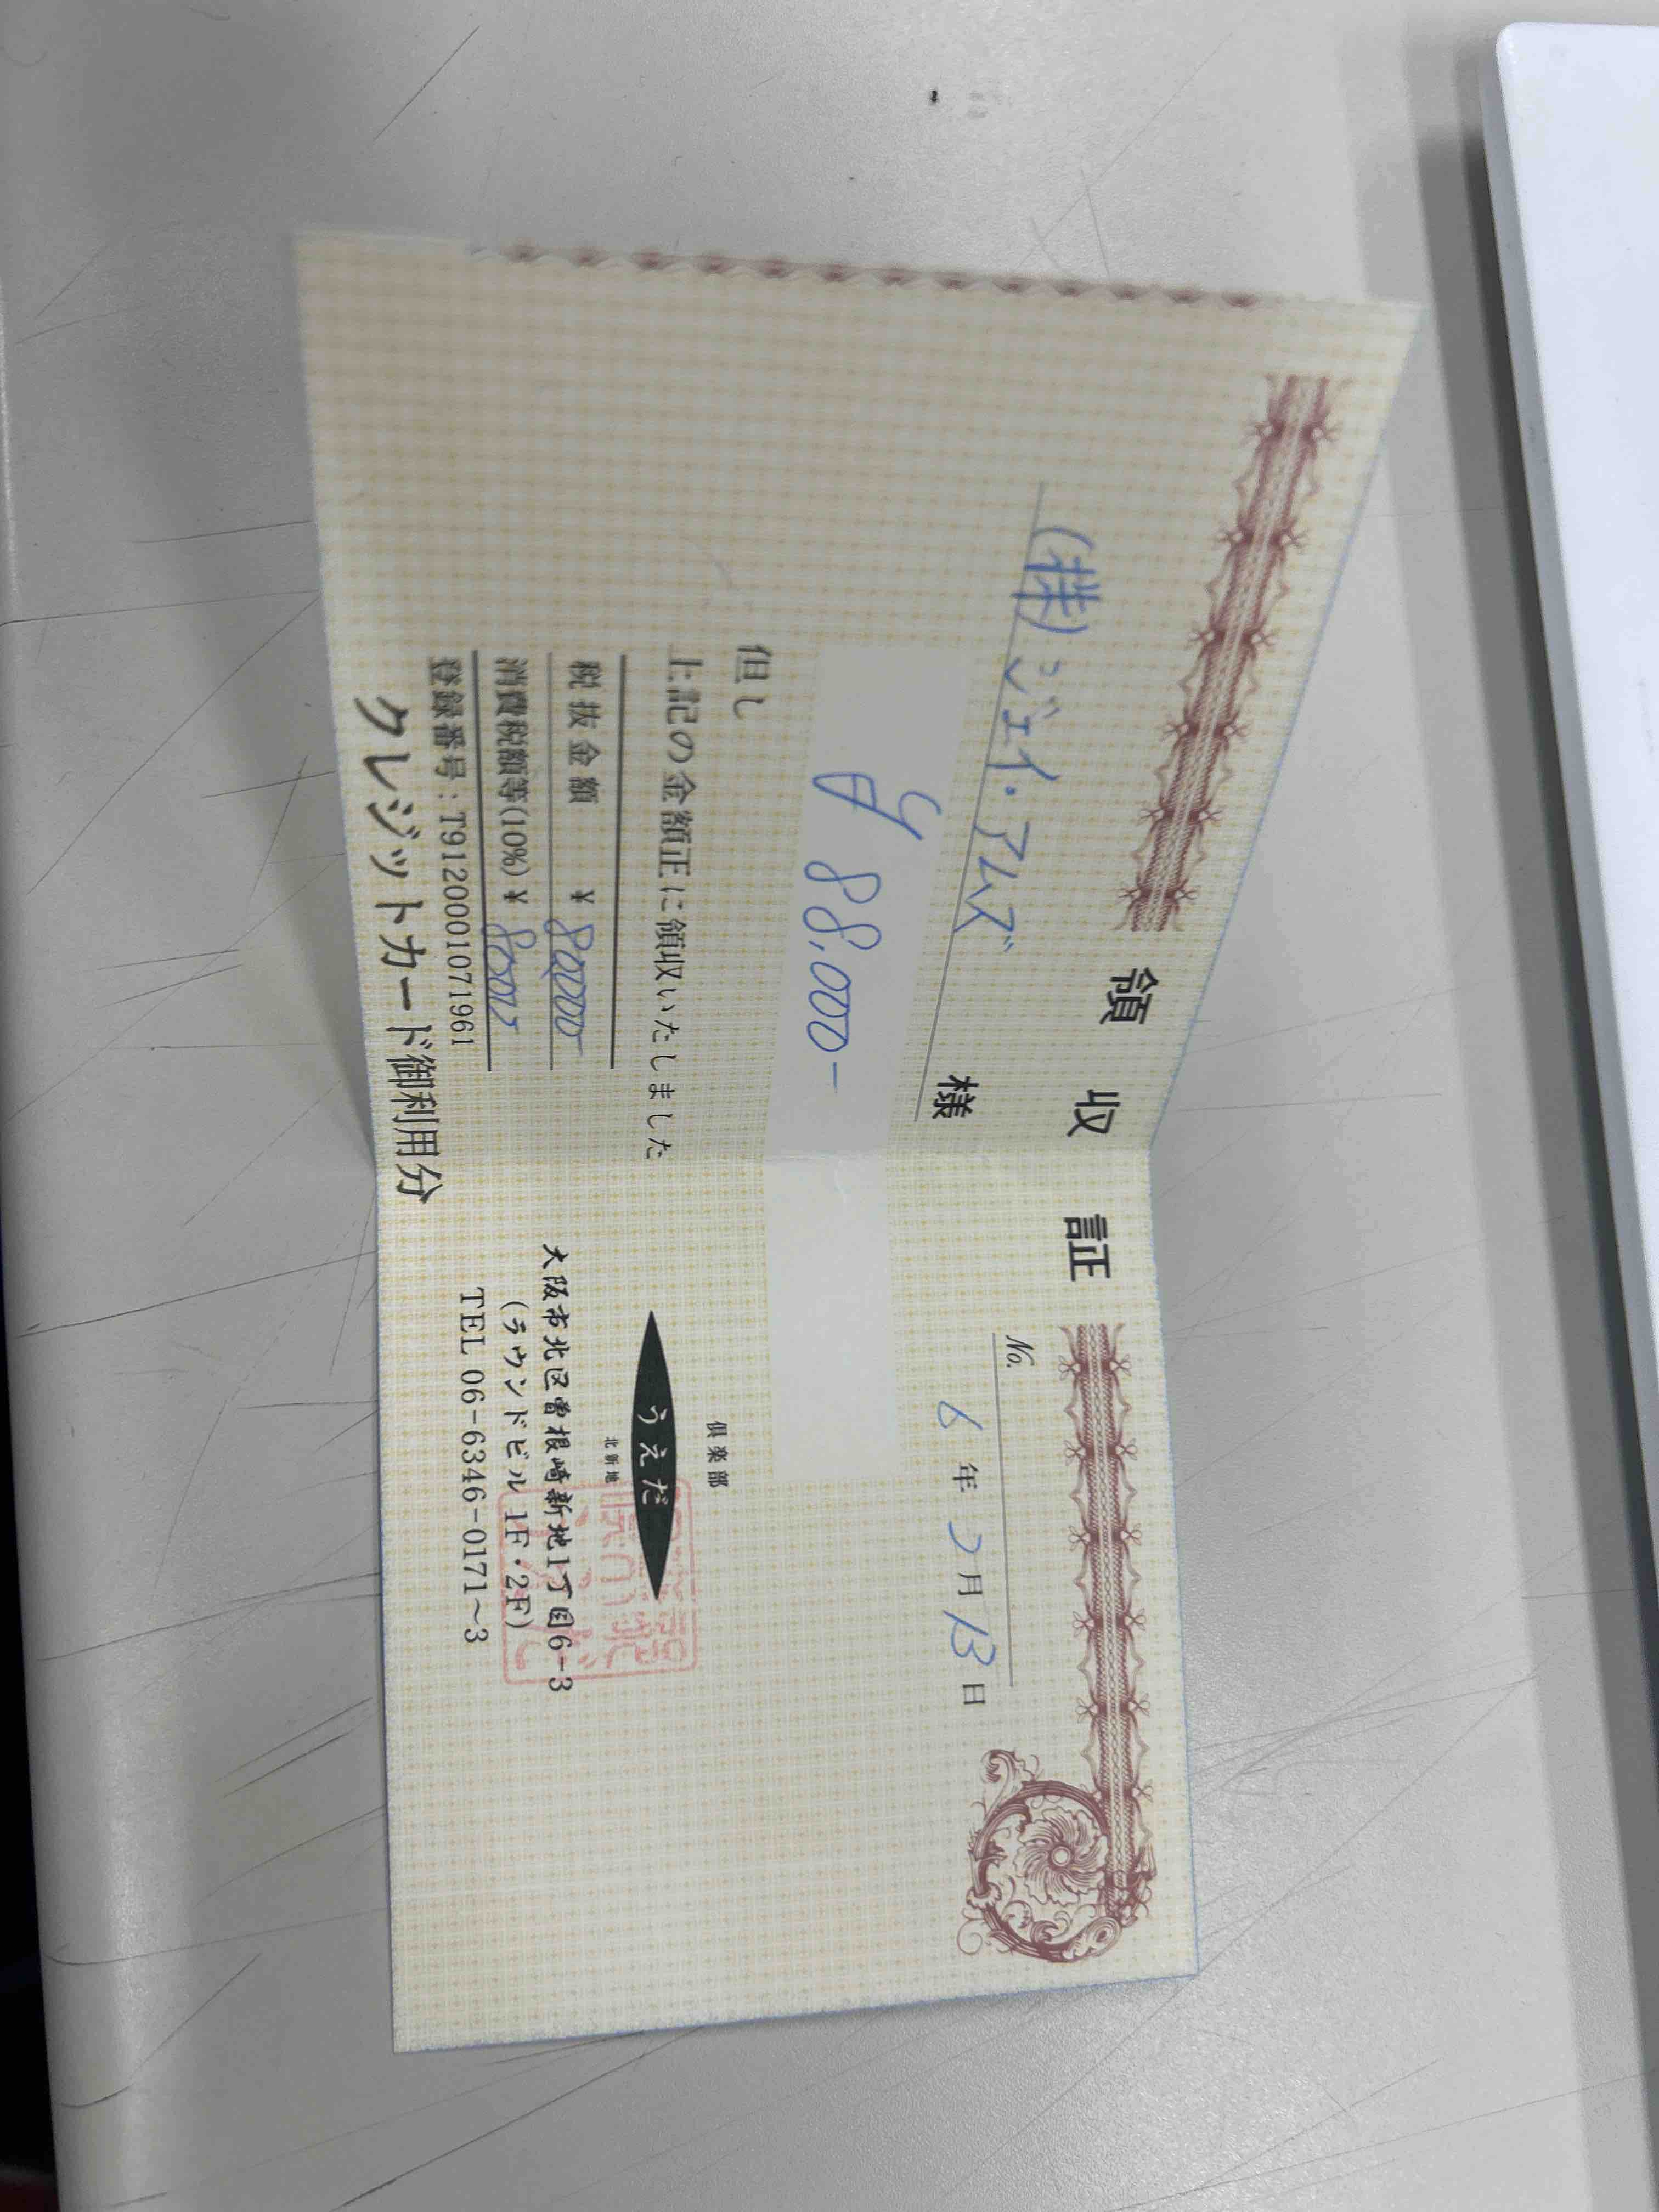 領収証
No.
6年2月13日
(株)ジェイ・アムズ 様
¥88,000-
但し
上記の金額正に領収いたしました
税抜金額 ¥80000
消費税額等(10%) ¥8000
登録番号:T9120001071961
クレジットカード御利用分
倶楽部
うえだ
北新地
大阪市北区曽根崎新地1丁目6-3
(ラウンドビル1F・2F)
TEL 06-6346-0171~3